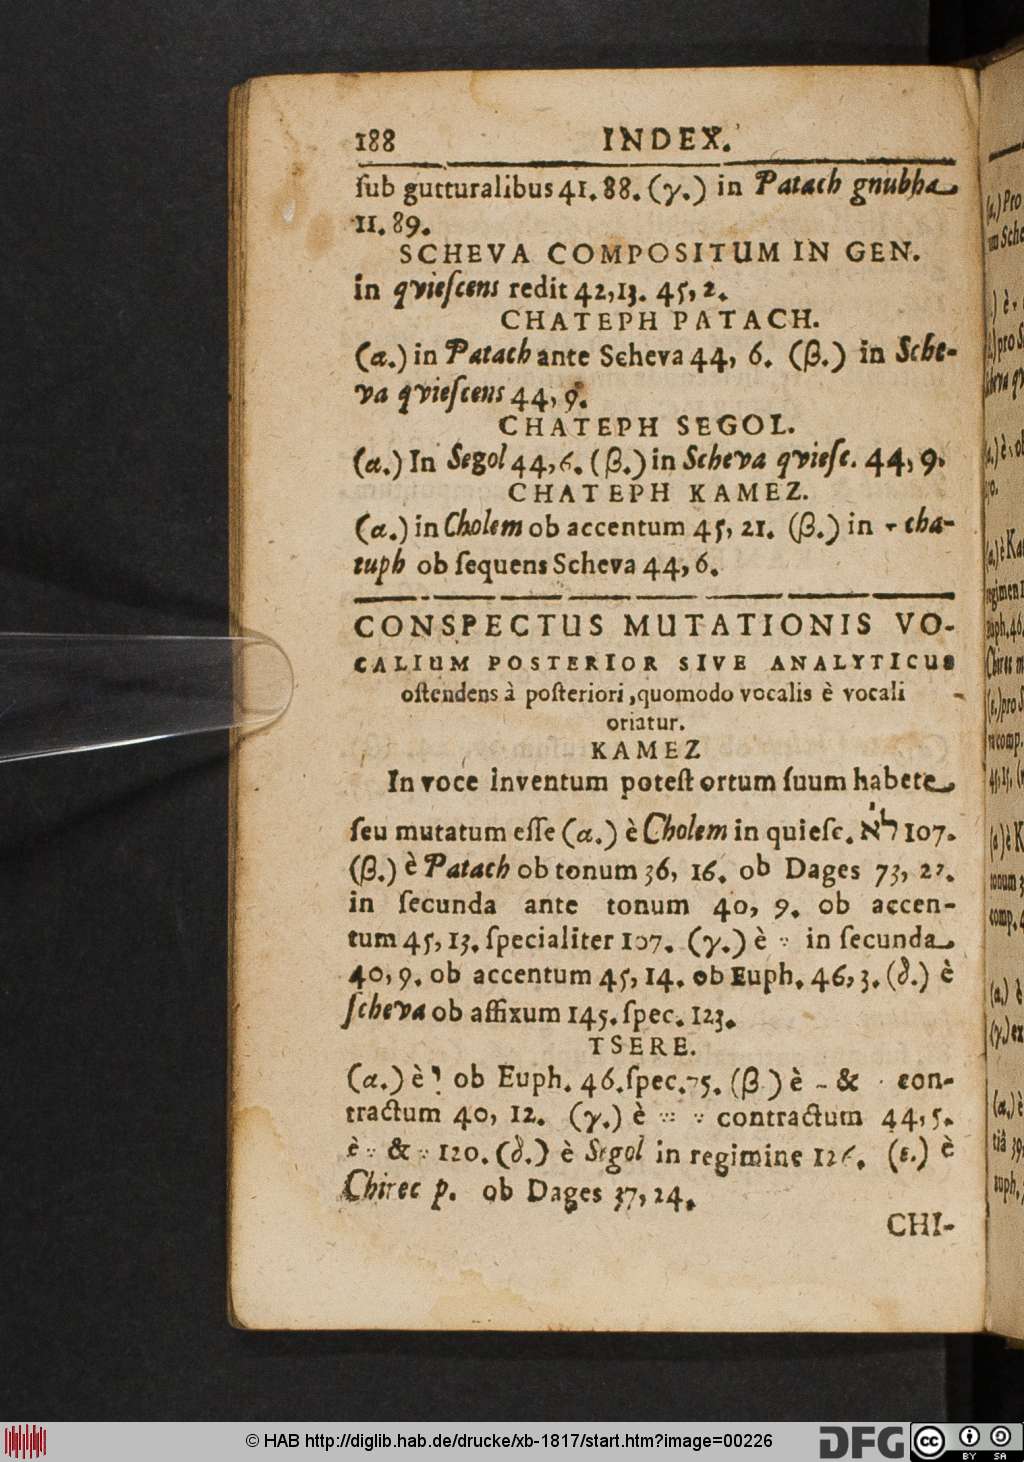 188 INDEX.
ſub gutturalibus 41. 88. (γ.) in Patach gnubha
11. 89.
SCHEVA COMPOSITUM IN GEN.
in qvieſcens redit 42, 13. 45, 2.
CHATEPH PATACH.
(α.) in Patach ante Scheva 44, 6. (β.) in Sche-
va qvieſcens 44, 9.
CHATEPH SEGOL.
(α.) In Segol 44, 6. (β.) in Scheva qvieſc. 44, 9.
CHATEPH KAMEZ.
(α.) in Cholem ob accentum 45, 21. (β.) in cha-
tuph ob ſequens Scheva 44, 6.
CONSPECTUS MUTATIONIS VO-
CALIUM POSTERIOR SIVE ANALYTICUS
oſtendens à poſteriori, quomodo vocalis è vocali
oriatur.
KAMEZ
In voce inventum poteſt ortum ſuum habere
ſeu mutatum eſſe (α.) è Cholem in quieſc. לֹא 107.
(β.) è Patach ob tonum 36, 16. ob Dages 73, 22.
in ſecunda ante tonum 40, 9. ob accen-
tum 45, 13. ſpecialiter 107. (γ.) è in ſecunda
40, 9. ob accentum 45, 14. ob Euph. 46, 3. (δ.) è
ſcheva ob affixum 145. ſpec. 123.
TSERE.
(α.) è ob Euph. 46. ſpec. 75. (β.) è & con-
tractum 40, 12. (γ.) è contractum 44, 5.
è & 120. (δ.) è Segol in regimine 126. (ε.) è
Chirec p. ob Dages 37, 24.
CHI-
© HAB http://diglib.hab.de/drucke/xb-1817/start.htm?image=00226
DFG
cc BY SA